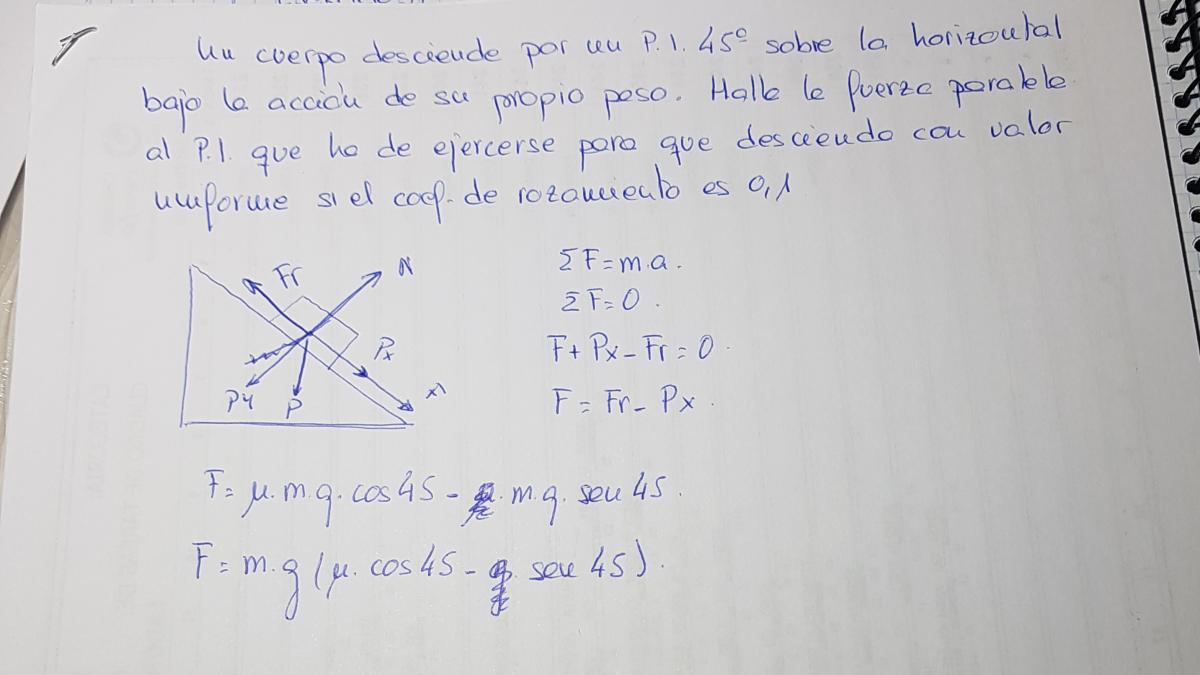 Un cuerpo desciende por un P.I. 45º sobre la horizontal
bajo la acción de su propio peso. Halle la fuerza paralela
al P.I. que ha de ejercerse para que descienda con valor
uniforme si el coef. de rozamiento es 0,1
Fr
N
Px
Py
P
ΣF=m.a.
ΣF=0.
F+Px-Fr=0.
F=Fr-Px.
F=μ.m.g.cos45-m.g.sen45.
F=m.g(μ.cos45-sen45).